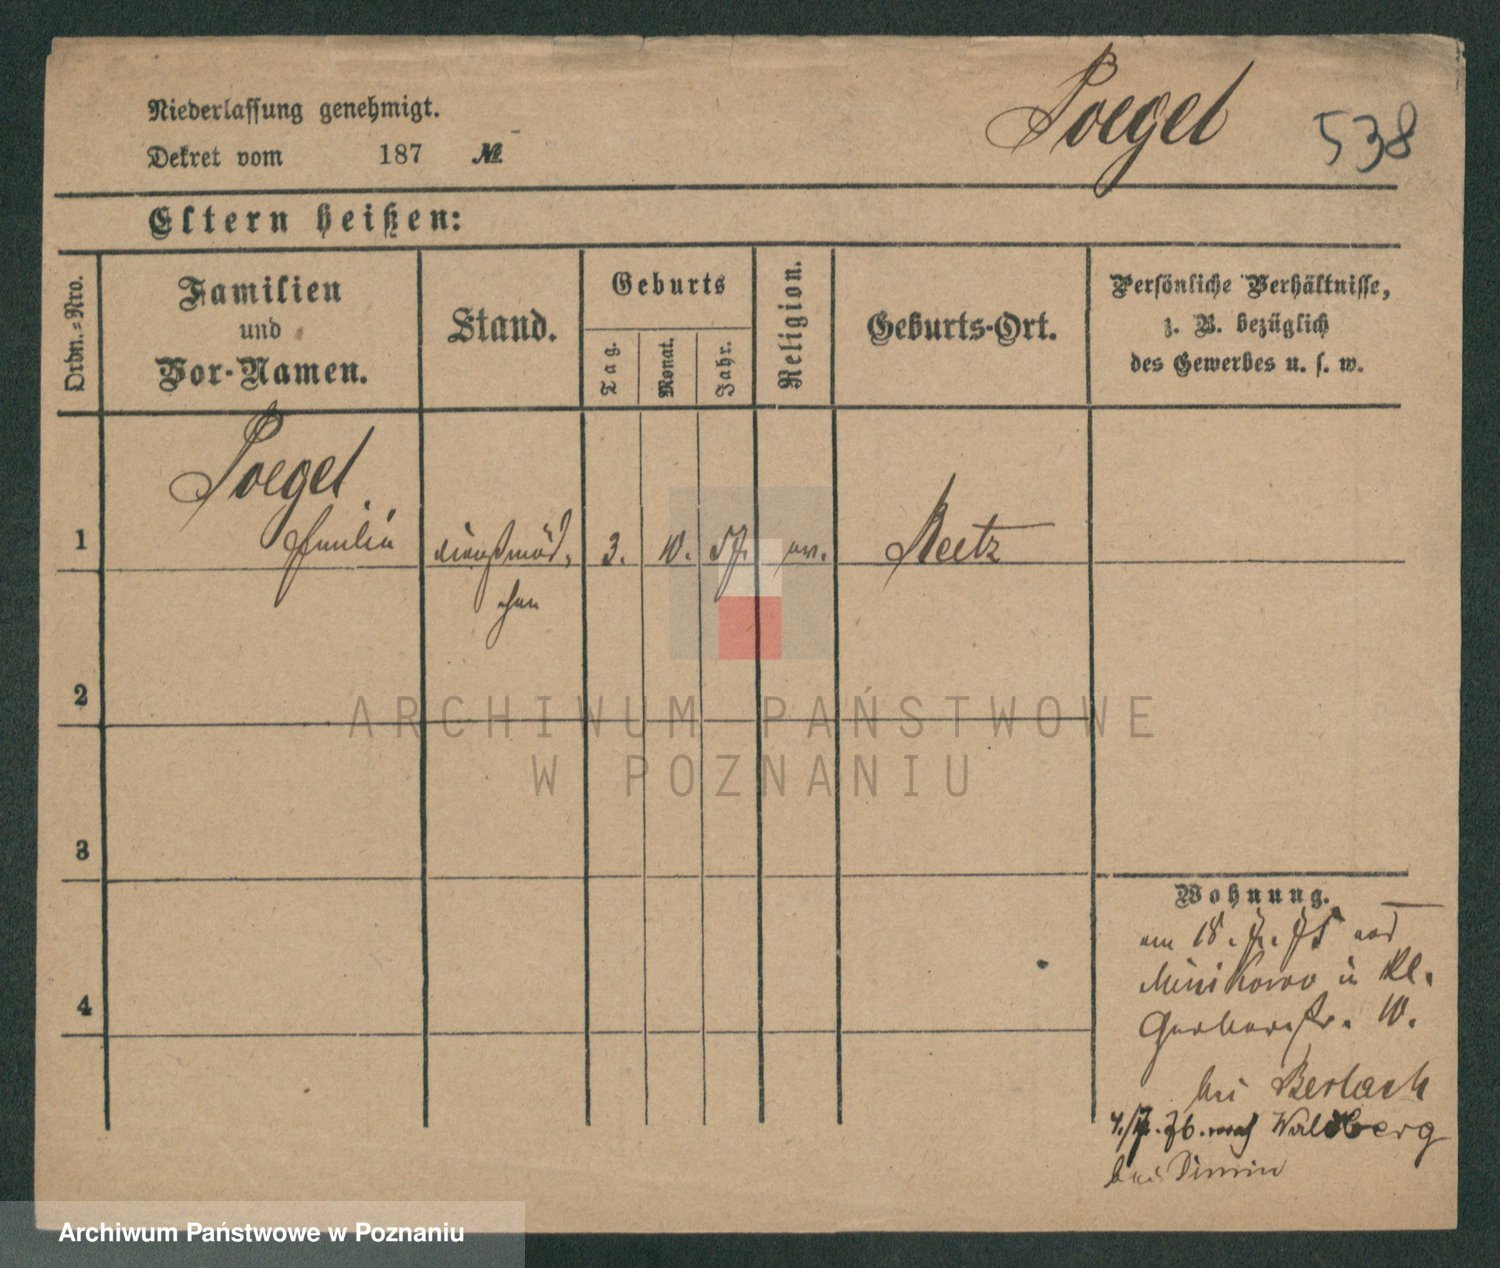 Niederlassung genehmigt.
Dekret vom 187 №
Poegel 538
Eltern heißen:
Ordn.=Nro.
Familien
und
Vor-Namen.
Stand.
Geburts
Tag.
Monat.
Jahr.
Religion.
Geburts-Ort.
Persönliche Verhältnisse,
z. B. bezüglich
des Gewerbes u. s. w.
Poegel
1 Emilie dienstmäd- 3. 10. 57. ev. Reetz
chen
2
3
4
Wohnung.
am 18. 7. 75 aus
Minikowo in Kl.
Gerberstr. 10.
bei Berlach
nach Waldberg
bei
ARCHIWUM PAŃSTWOWE
W POZNANIU
Archiwum Państwowe w Poznaniu